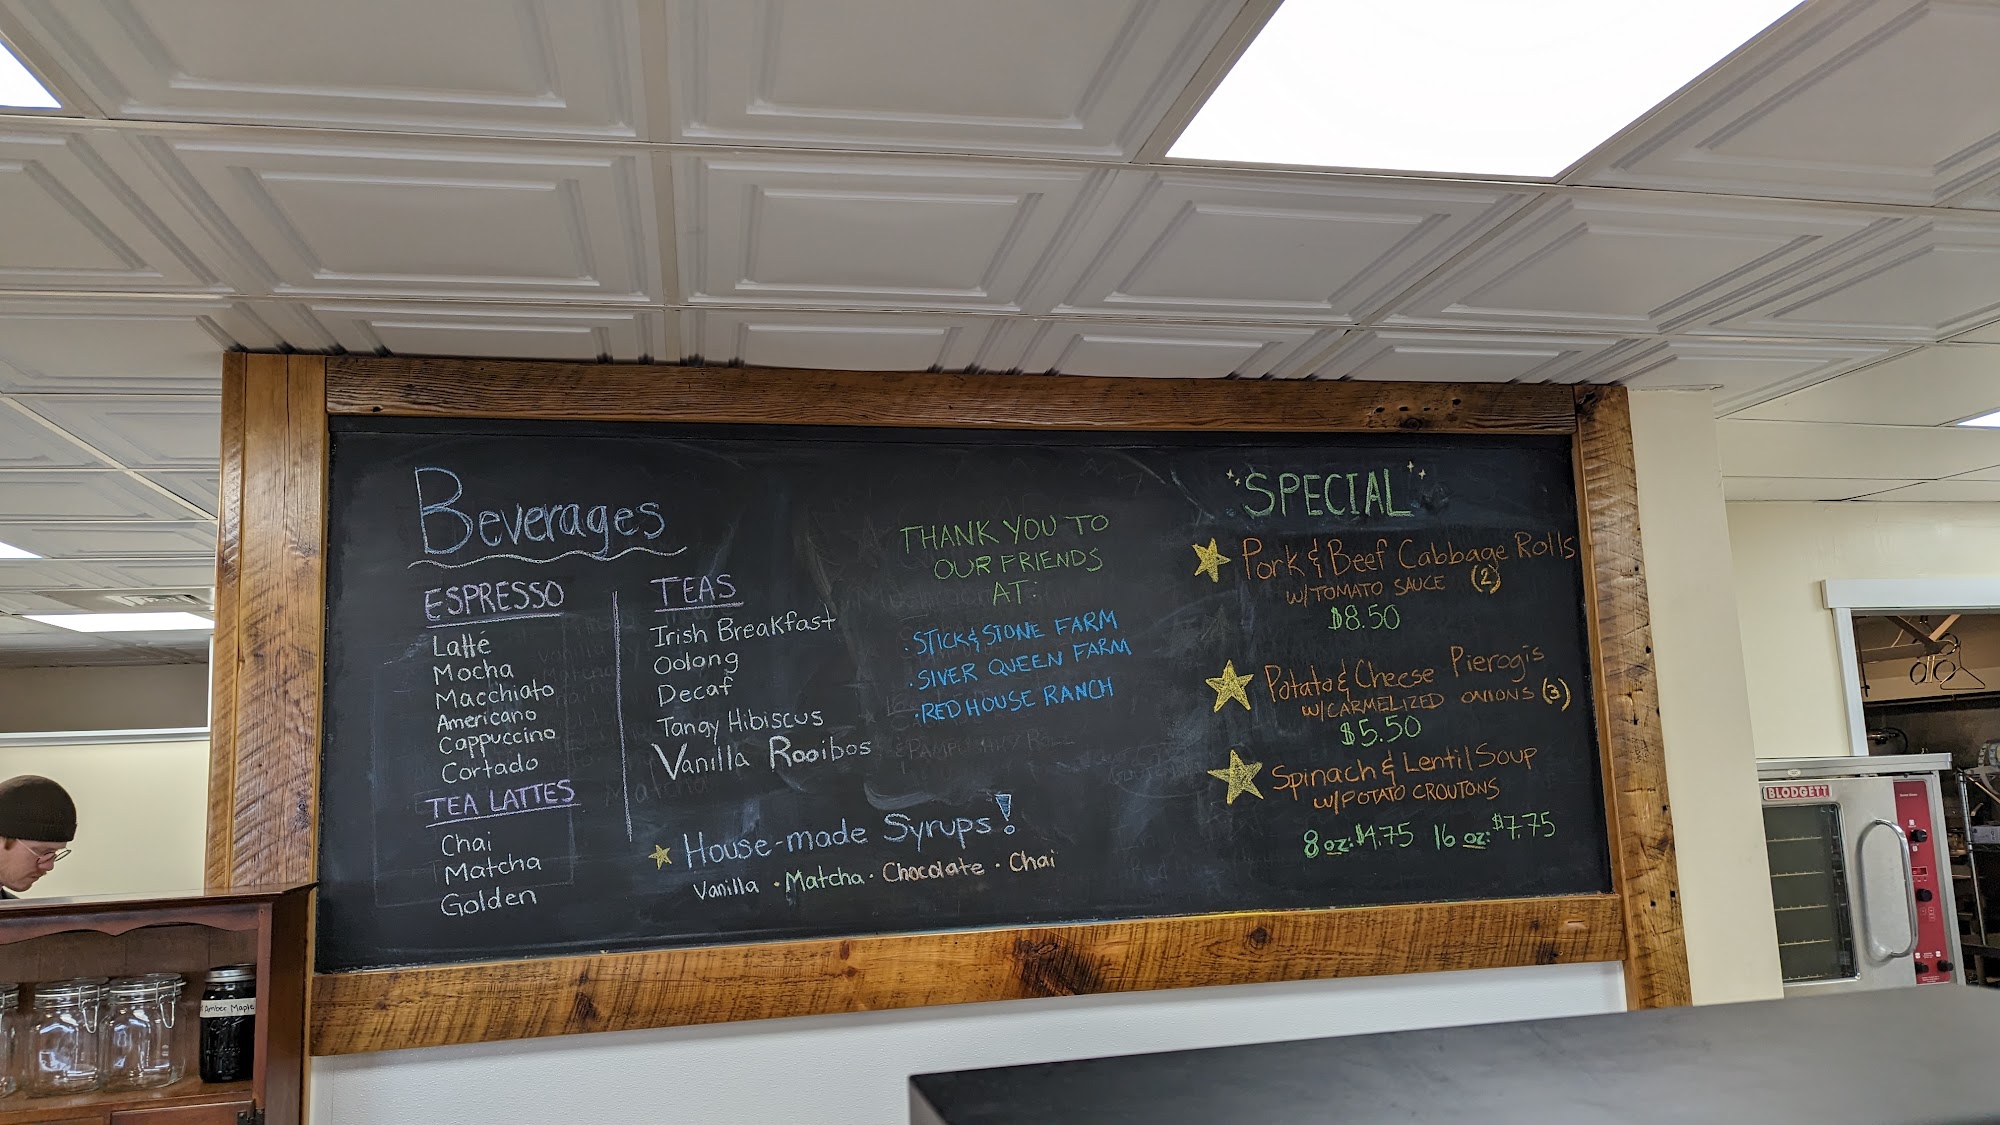 Beverages
ESPRESSO
Latté
Mocha
Macchiato
Americano
Cappuccino
Cortado
TEA LATTES
Chai
Matcha
Golden
TEAS
Irish Breakfast
Oolong
Decaf
Tangy Hibiscus
Vanilla Rooibos
House-made Syrups!
Vanilla · Matcha · Chocolate · Chai
THANK YOU TO
OUR FRIENDS
AT:
· STICK & STONE FARM
· SIVER QUEEN FARM
· RED HOUSE RANCH
SPECIAL
Pork & Beef Cabbage Rolls
W/TOMATO SAUCE (2)
$8.50
Potato & Cheese Pierogis
W/CARMELIZED ONIONS (3)
$5.50
Spinach & Lentil Soup
W/POTATO CROUTONS
8 oz: $4.75 16 oz: $7.75
BLODGETT
Amber Maple